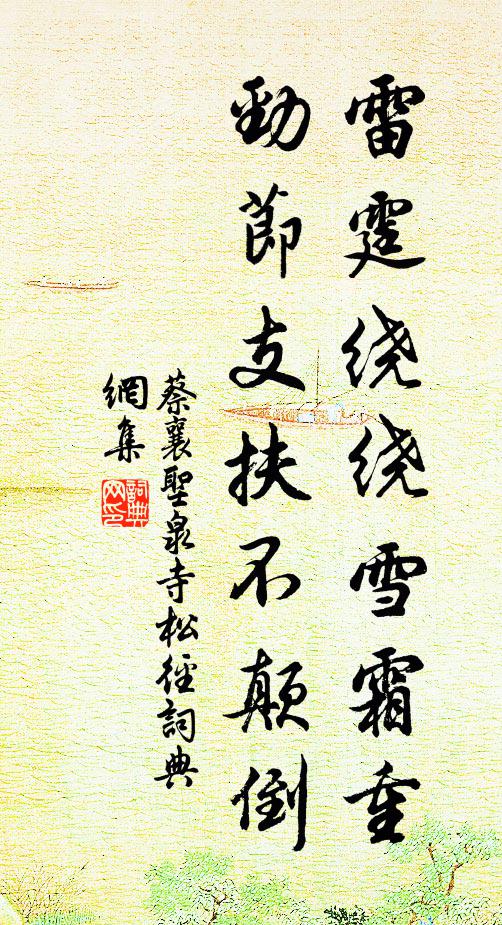 雷霆绕绕雪霜重
劲節支扶不颠倒
蔡襄聖泉寺松徑詞典
網集
詞典
网印